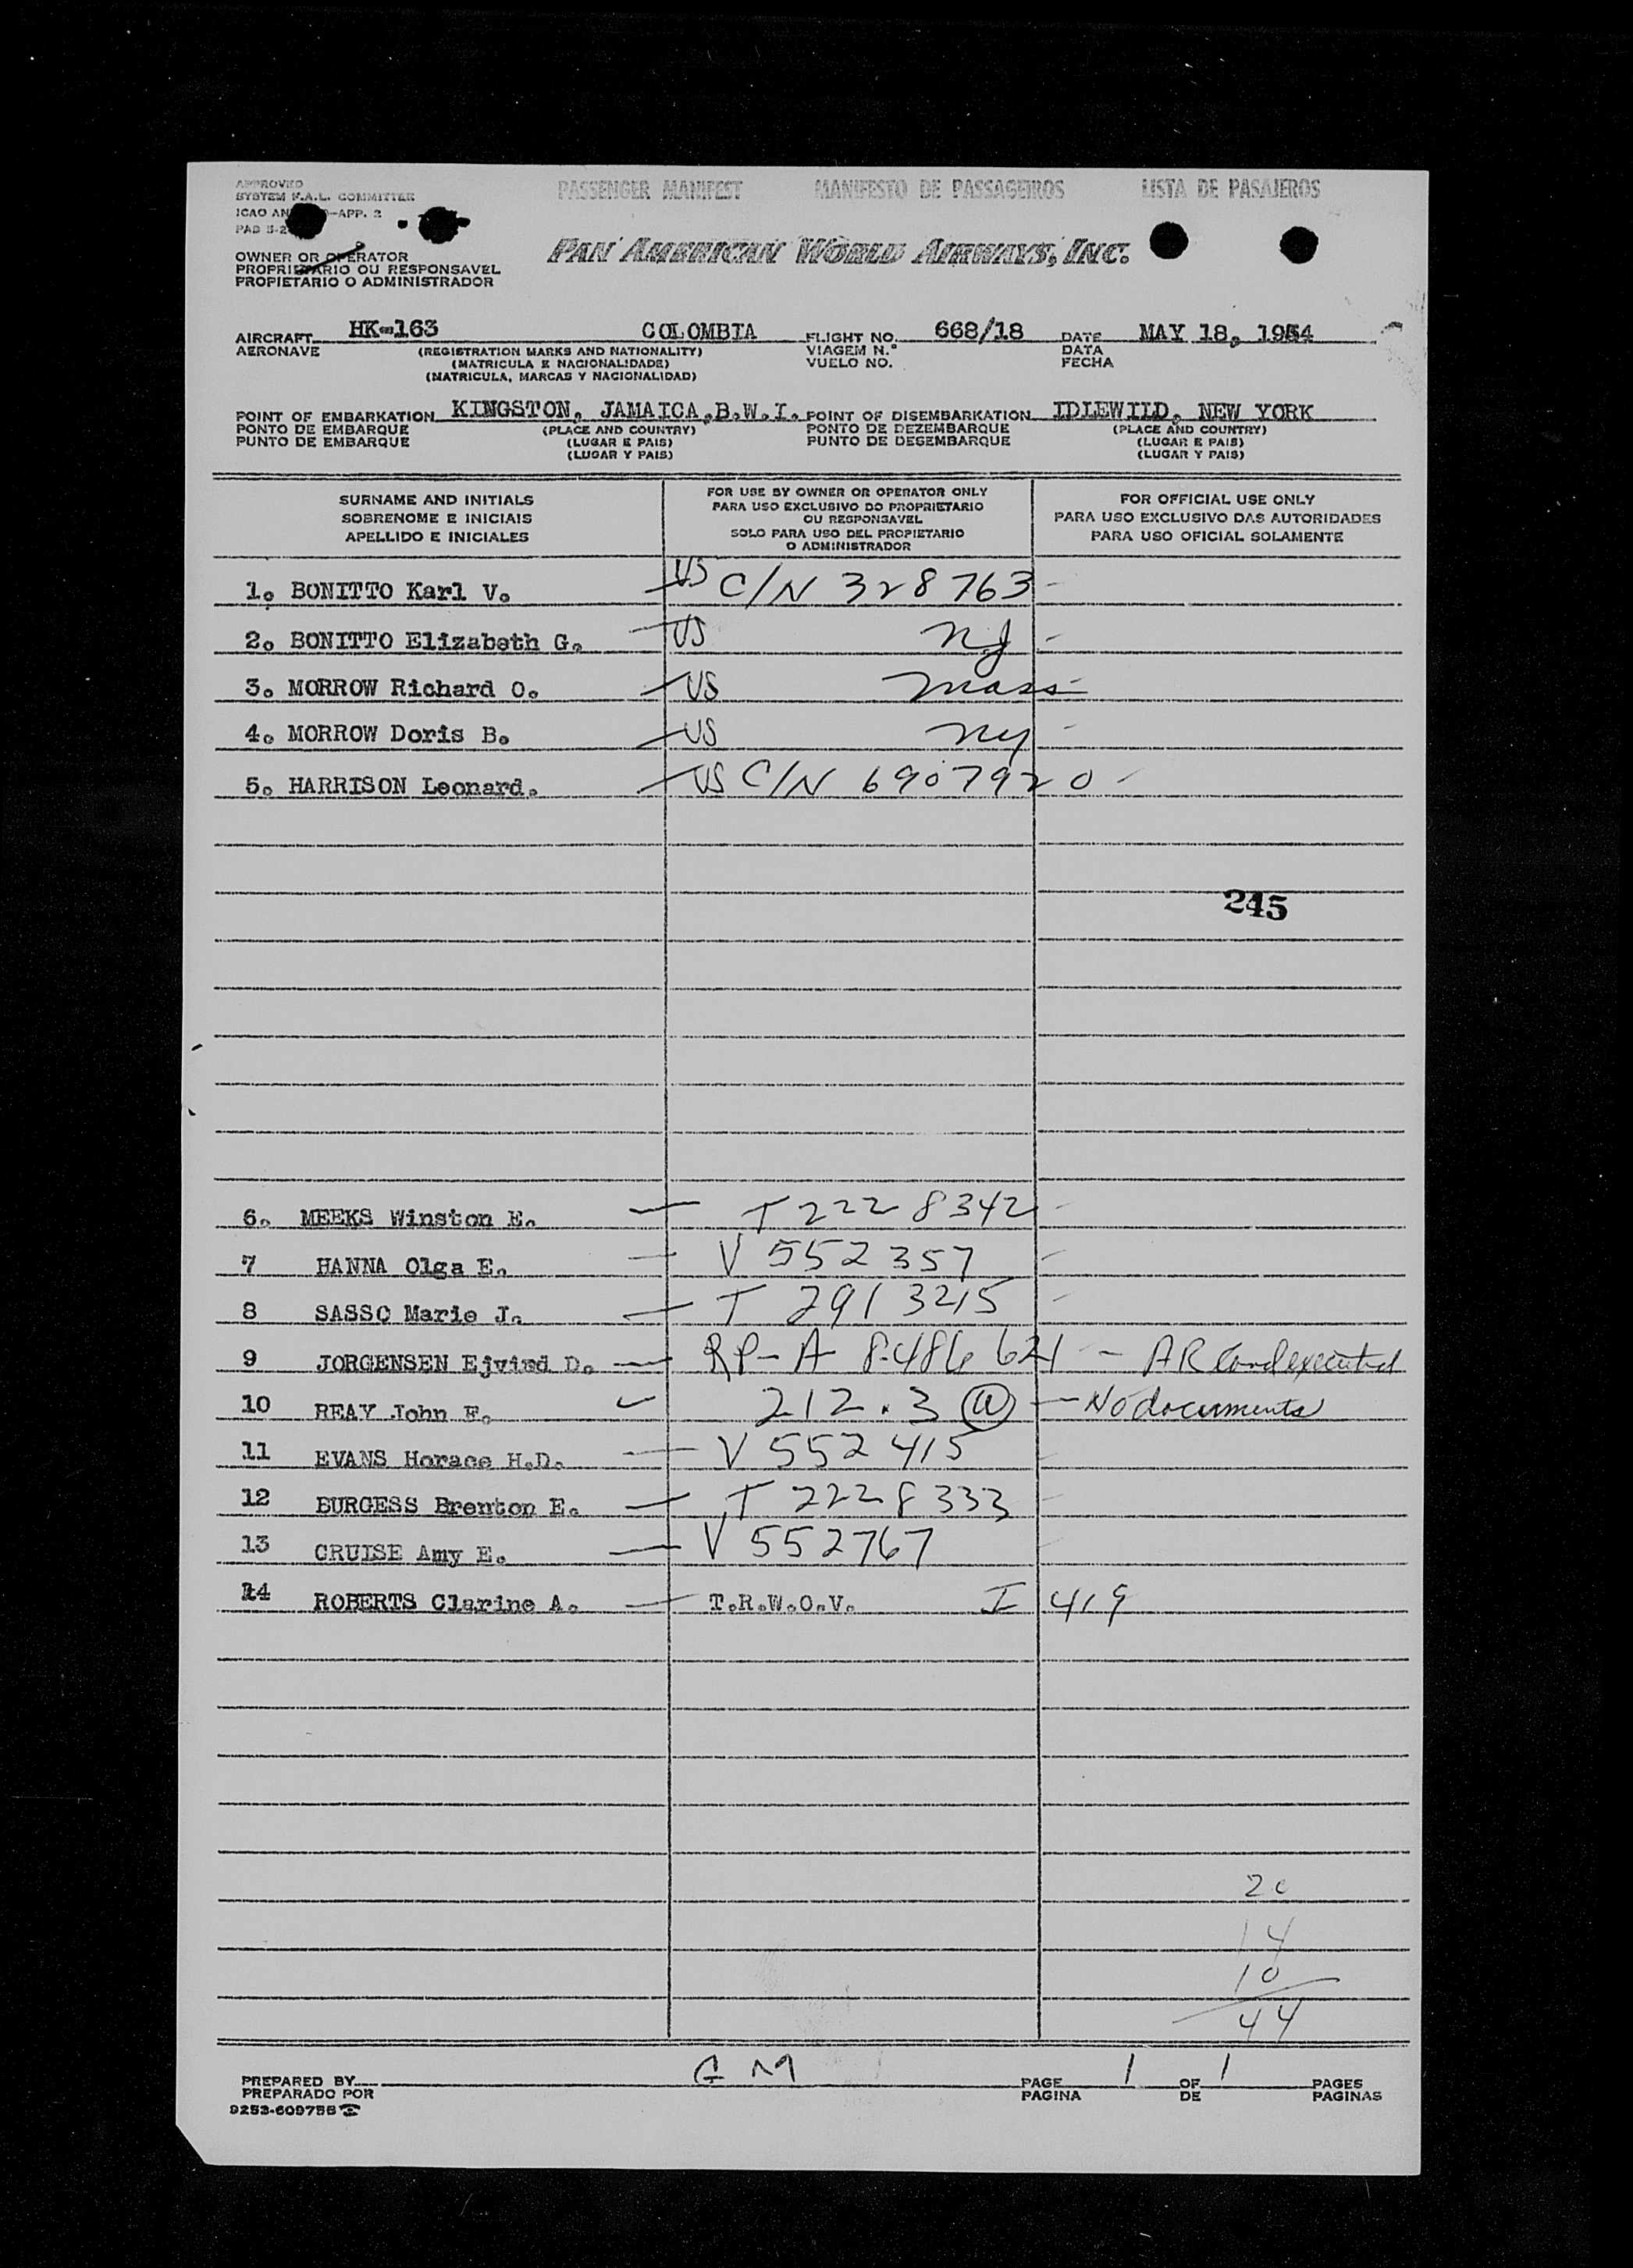 APPROVED
SYSTEM F.A.L. COMMITTEE
ICAO AN -APP. 2
PAD 5-2
PASSENGER MANIFEST MANIFESTO DE PASSAGEIROS LISTA DE PASAJEROS
PAN AMERICAN WORLD AIRWAYS, INC.
OWNER OR OPERATOR
PROPRIETARIO OU RESPONSAVEL
PROPIETARIO O ADMINISTRADOR
AIRCRAFT HK-163 COLOMBIA FLIGHT NO. 668/18 DATE MAY 18, 1954
AERONAVE (REGISTRATION MARKS AND NATIONALITY) VIAGEM N.° DATA
(MATRICULA E NACIONALIDADE) VUELO NO. FECHA
(MATRICULA, MARCAS Y NACIONALIDAD)
POINT OF EMBARKATION KINGSTON, JAMAICA,B.W.I. POINT OF DISEMBARKATION IDLEWILD, NEW YORK
PONTO DE EMBARQUE (PLACE AND COUNTRY) PONTO DE DEZEMBARQUE (PLACE AND COUNTRY)
PUNTO DE EMBARQUE (LUGAR E PAIS) PUNTO DE DESEMBARQUE (LUGAR E PAIS)
(LUGAR Y PAIS) (LUGAR Y PAIS)
SURNAME AND INITIALS
SOBRENOME E INICIAIS
APELLIDO E INICIALES
FOR USE BY OWNER OR OPERATOR ONLY
PARA USO EXCLUSIVO DO PROPRIETARIO
OU RESPONSAVEL
SOLO PARA USO DEL PROPIETARIO
O ADMINISTRADOR
FOR OFFICIAL USE ONLY
PARA USO EXCLUSIVO DAS AUTORIDADES
PARA USO OFICIAL SOLAMENTE
1. BONITTO Karl V. US C/N 328763 -
2. BONITTO Elizabeth G. US NJ -
3. MORROW Richard O. US Mass
4. MORROW Doris B. US NY -
5. HARRISON Leonard. US C/N 6907920 -
245
6. MEEKS Winston E. T 2228342 -
7 HANNA Olga E. V 552357 -
8 SASSO Marie J. T 2913215 -
9 JORGENSEN Ejvind D. RP-A 8-486 621 - AR Card executed
10 REAY John F. 212.3 (a) - No documents
11 EVANS Horace H.D. V 552415
12 BURGESS Brenton E. T 2228333 -
13 CRUISE Amy E. V 552767
14 ROBERTS Clarine A. T.R.W.O.V. I 419
20
14
10
44
PREPARED BY G M PAGE 1 OF 1 PAGES
PREPARADO POR PAGINA DE PAGINAS
9253-609755